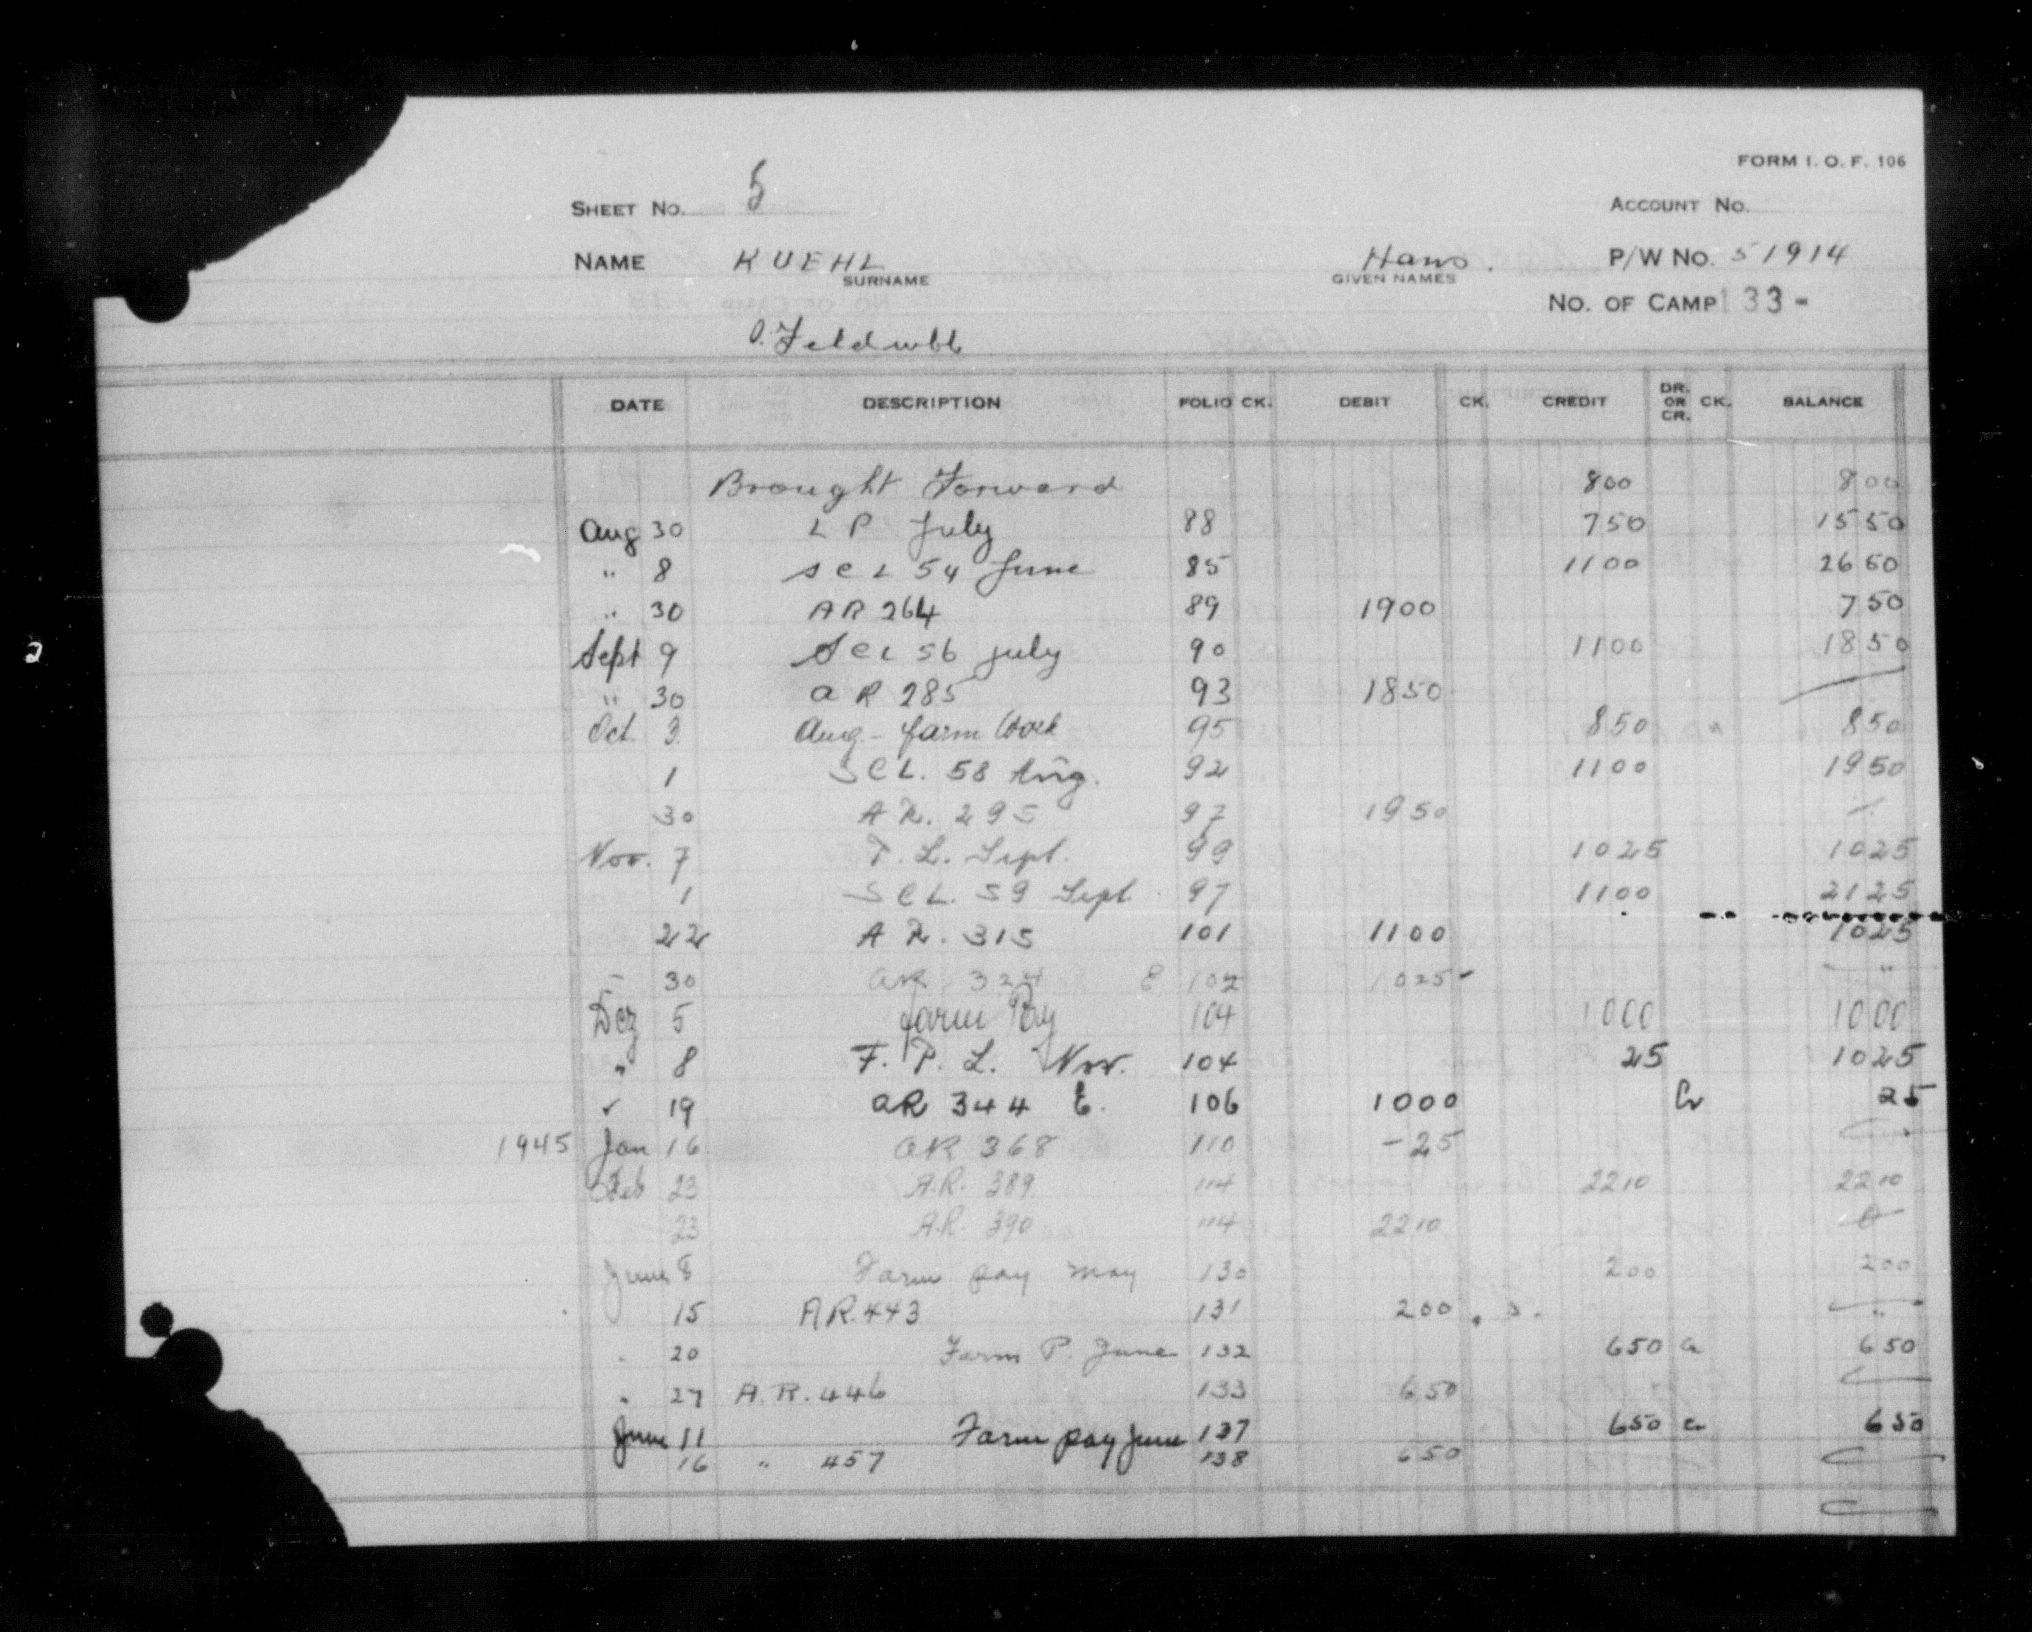 FORM I. O. F. 106
SHEET NO. 5 ACCOUNT NO.
NAME KUEHL Hans. P/W NO. 51914
SURNAME GIVEN NAMES
NO. OF CAMP 133-
O. Feldwbl
DATE DESCRIPTION FOLIO CK. DEBIT CK. CREDIT DR. OR CR. CK. BALANCE
Brought Forward 800 800
Aug 30 L P July 88 750 1550
" 8 S C L 54 June 85 1100 2650
" 30 A R 264 89 1900 750
Sept 9 S C L 56 July 90 1100 1850
" 30 a R 285 93 1850
Oct. 3 Aug - farm Work 95 850 850
1 S C L. 58 Aug. 92 1100 1950
30 A R. 295 97 1950
Nov. 7 T. L. Sept. 99 1025 1025
1 S C L. 59 Sept 97 1100 2125
22 A R. 315 101 1100 1025
30 aR 324 E 102 1025 - "
Dez 5 farm Pay 104 1000 1000
" 8 F. P. L. Nov. 104 25 1025
" 19 aR 344 E. 106 1000 Cr 25
1945 Jan 16 aR 368 110 -25
Feb 23 A.R. 389 114 2210 2210
23 A.R. 390 114 2210 0
June 8 Farm pay May 130 200 200
15 A.R. 443 131 200 "
" 20 Farm P. June 132 650 Cr 650
" 27 A. R. 446 133 650
June 11 Farm pay June 137 650 Cr 650
16 " 457 138 650
2